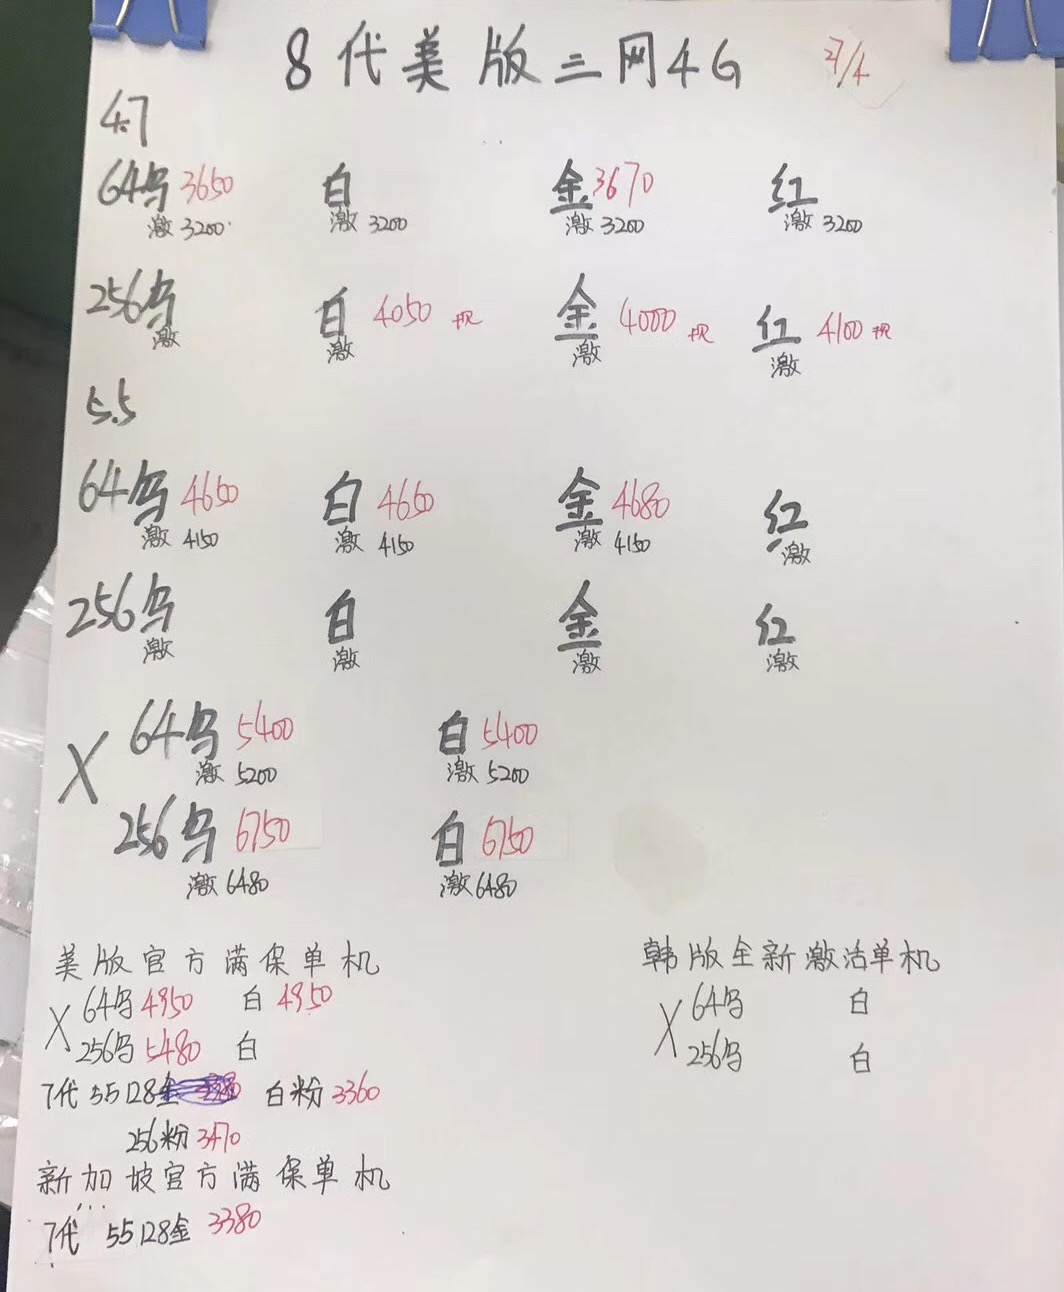 8代美版三网4G 27/4
4.7
64乌 3650 白 金 3670 红
激 3200 激 3200 激 3200 激 3200
256乌 白 4050 现 金 4000 现 红 4100 现
激 激 激 激
5.5
64乌 4650 白 4650 金 4680 红
激 4150 激 4150 激 4150 激
256乌 白 金 红
激 激 激 激
X 64乌 5400 白 5400
激 5200 激 5200
256乌 6750 白 6750
激 6480 激 6480
美版官方满保单机
X 64乌 4950 白 4950
256乌 5480 白
7代 55 128金 白粉 3360
256粉 3470
新加坡官方满保单机
7代 55 128金 3380
韩版全新激活单机
X 64乌 白
256乌 白